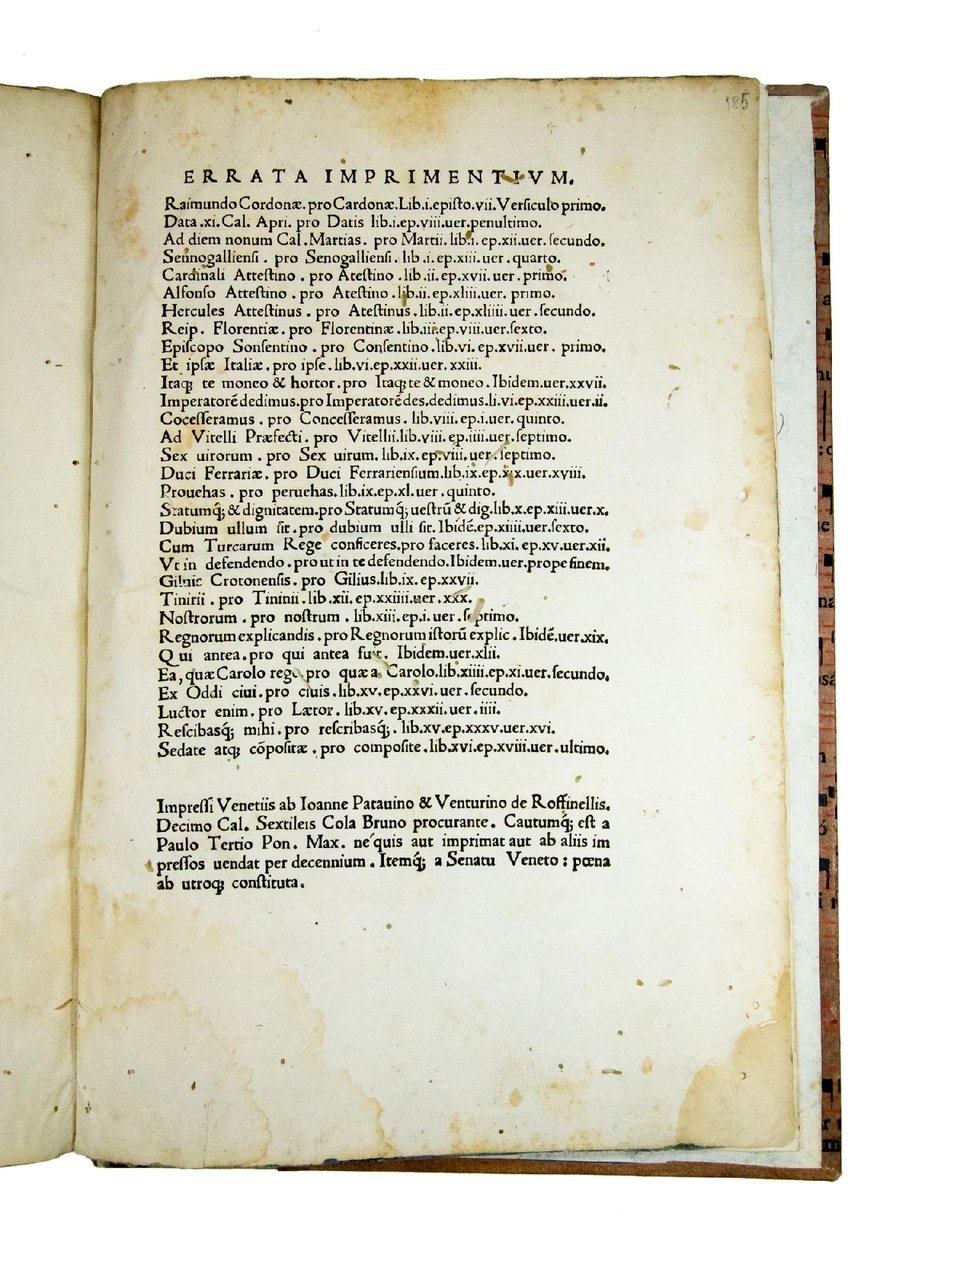 185
ERRATA IMPRIMENTIVM.
Raimundo Cordonæ. pro Cardonæ. Lib.i.episto.vii.Versiculo primo.
Data.xi.Cal. Apri. pro Datis lib.i.ep.viii.uer.penultimo.
Ad diem nonum Cal.Martias. pro Martii. lib.i.ep.xii.uer.secundo.
Sennogalliensi. pro Senogalliensi. lib.i.ep.xiii.uer.quarto.
Cardinali Attestino. pro Atestino.lib.ii.ep.xvii.uer.primo.
Alfonso Attestino. pro Atestino.lib.ii.ep.xliii.uer. primo.
Hercules Attestinus. pro Atestinus.lib.ii.ep.xliiii.uer.secundo.
Reip. Florentiæ. pro Florentinæ.lib.iii.ep.viii.uer.sexto.
Episcopo Sonsentino. pro Consentino.lib.vi.ep.xvii.uer. primo.
Et ipsæ Italiæ. pro ipse.lib.vi.ep.xxii.uer.xxiii.
Itaq; te moneo & hortor. pro Itaq; te & moneo. Ibidem.uer.xxvii.
Imperatorē dedimus.pro Imperatorē des.dedimus.li.vi.ep.xxiii.uer.ii.
Cocesseramus. pro Concesseramus. lib.viii.ep.i.uer. quinto.
Ad Vitelli Præfecti. pro Vitellii.lib.viii.ep.iiii.uer.septimo.
Sex uirorum. pro Sex uirum. lib.ix.ep.viii.uer.septimo.
Duci Ferrariæ. pro Duci Ferrariensium.lib.ix.ep.xix.uer.xviii.
Prouehas. pro peruehas.lib.ix.ep.xl.uer.quinto.
Statumq́; & dignitatem.pro Statumq́; uestrū & dig.lib.x.ep.xiii.uer.x.
Dubium ullum sit. pro dubium ulli sit. Ibidē.ep.xiiii.uer.sexto.
Cum Turcarum Rege conficeres.pro faceres.lib.xi.ep.xv.uer.xii.
Vt in defendendo. pro ut in te defendendo.Ibidem.uer.prope finem.
Crotonensis. pro Gilius.lib.ix.ep.xxvii.
Tinirii. pro Tininii.lib.xii.ep.xxiiii.uer.xxx.
Nostrorum. pro nostrum. lib.xiii.ep.i.uer.septimo.
Regnorum explicandis. pro Regnorum istorū explic. Ibidē.uer.xix.
Qui antea. pro qui antea fui. Ibidem.uer.xlii.
Ea, quæ Carolo rege pro quæ a Carolo.lib.xiiii.ep.xi.uer.secundo.
Ex Oddi ciui. pro ciuis.lib.xv.ep.xxvi.uer.secundo.
Luctor enim. pro Lætor. lib.xv.ep.xxxii.uer.iiii.
Rescibasq́; mihi. pro rescribasq́;. lib.xv.ep.xxxv.uer.xvi.
Sedate atq; cōpositæ. pro composite.lib.xvi.ep.xviii.uer.ultimo.
Impressi Venetiis ab Ioanne Patauino & Venturino de Roffinellis.
Decimo Cal. Sextileis Cola Bruno procurante. Cautumq́; est a
Paulo Tertio Pon. Max. ne quis aut imprimat aut ab aliis im
pressos uendat per decennium. Itemq́; a Senatu Veneto: pœna
ab utroq; constituta.